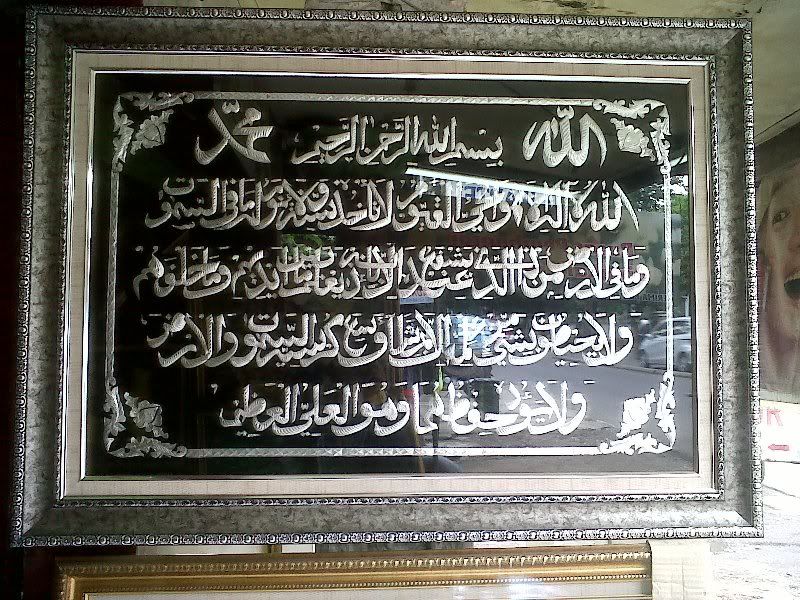 الله بسم الله الرحمن الرحيم محمد
الله لا اله الا هو الحي القيوم لا تأخذه سنة ولا نوم له ما في السموت
وما في الارض من ذا الذي يشفع عنده الا باذنه يعلم ما بين ايديهم وما خلفهم
ولا يحيطون بشيء من علمه الا بما شاء وسع كرسيه السموت والارض
ولا يؤده حفظهما وهو العلي العظيم